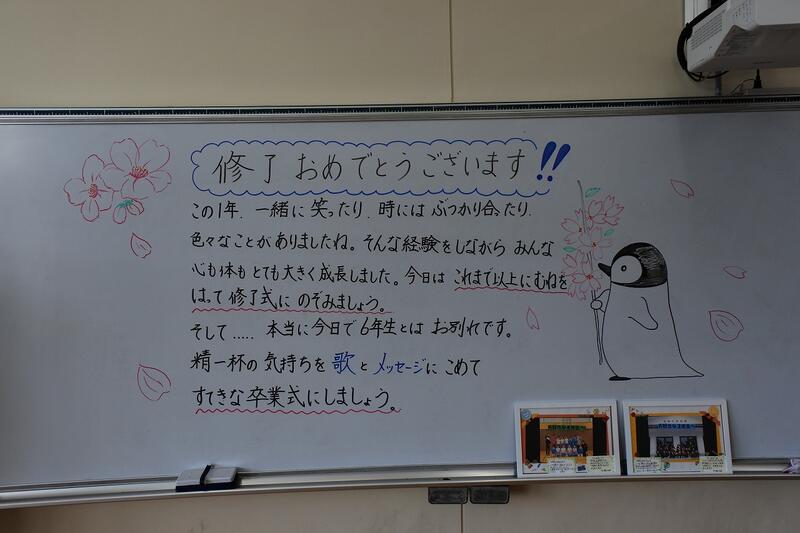 修了 おめでとうございます!!
この1年、一緒に 笑ったり、時には ぶつかり合ったり、
色々なことが ありましたね。そんな経験をしながら みんな
心も体も とても 大きく 成長しました。今日は これまで以上に むねを
はって 修了式に のぞみましょう。
そして..... 本当に 今日で 6年生とは お別れです。
精一杯の 気持ちを 歌と メッセージに こめて
すてきな 卒業式に しましょう。